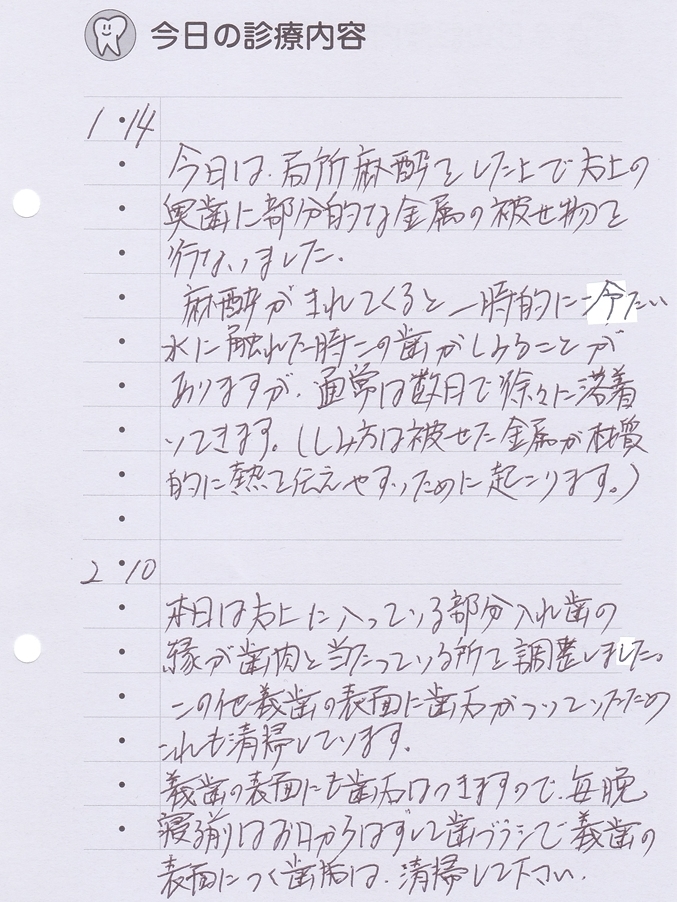 今日の診療内容
1・14
今日は、局所麻酔をした上で右上の
奥歯に部分的な金属の被せ物を
行ないました。
麻酔がきれてくると一時的に冷たい
水に触れた時この歯がしみることが
ありますが、通常は数日で徐々に落着
いてきます。(しみ方は被せた金属が材質
的に熱を伝えやすいために起こります。)
2・10
本日は右上に入っている部分入れ歯の
縁が歯肉と当たっている所を調整しました。
この他義歯の表面に歯石がついていたため
これも清掃しています。
義歯の表面にも歯石はつきますので、毎晩
寝る前はお口からはずして歯ブラシで義歯の
表面につく歯垢は、清掃して下さい。